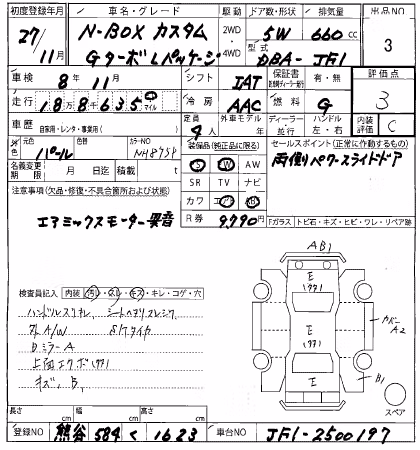 初度登録年月 車名・グレード 駆動 ドア数・形状 排気量 出品NO
27/11月 N-BOX カスタム Gターボ Lパッケージ 2WD・4WD 5W 660cc 3
型式 DBA-JF1
車検 8年11月 シフト IAT 保証書 有・無 評価点
走行 188635 マイル 冷房 AAC 燃料 G 3
車歴 自家用・レンタ・事業用( ) 定員 4人 外車モデル 年 ディーラー 並行 ハンドル 左・右 内装評価 C
外色 元色 パール 色 カラーNO NH875P 装備品(純正品に限る) セールスポイント(正常に作動するもの)
名義変更期限 月 日迄 積載量 t SR PS PW AW TV ナビ 両側パワースライドドア
注意事項(欠品・修復・不具合箇所および状態) カワ エアB ABS
エアミックスモーター異音 R券 9,790円 Fガラス トビ石・キズ・ヒビ・ワレ・リペア跡
AB1
検査員記入 内装 汚レ・スレ・キズ・キレ・コゲ・穴
ハンドルスリキレ シートヘタリスレシワ
外A/W S/Tタイヤ
DミラーA
上面エクボ
キズ、B、
E
E
E
カバー A2
B1
スペア
長さ cm 幅 cm 高さ cm
登録NO 熊谷 584 く 1623 車台NO JF1-2500197